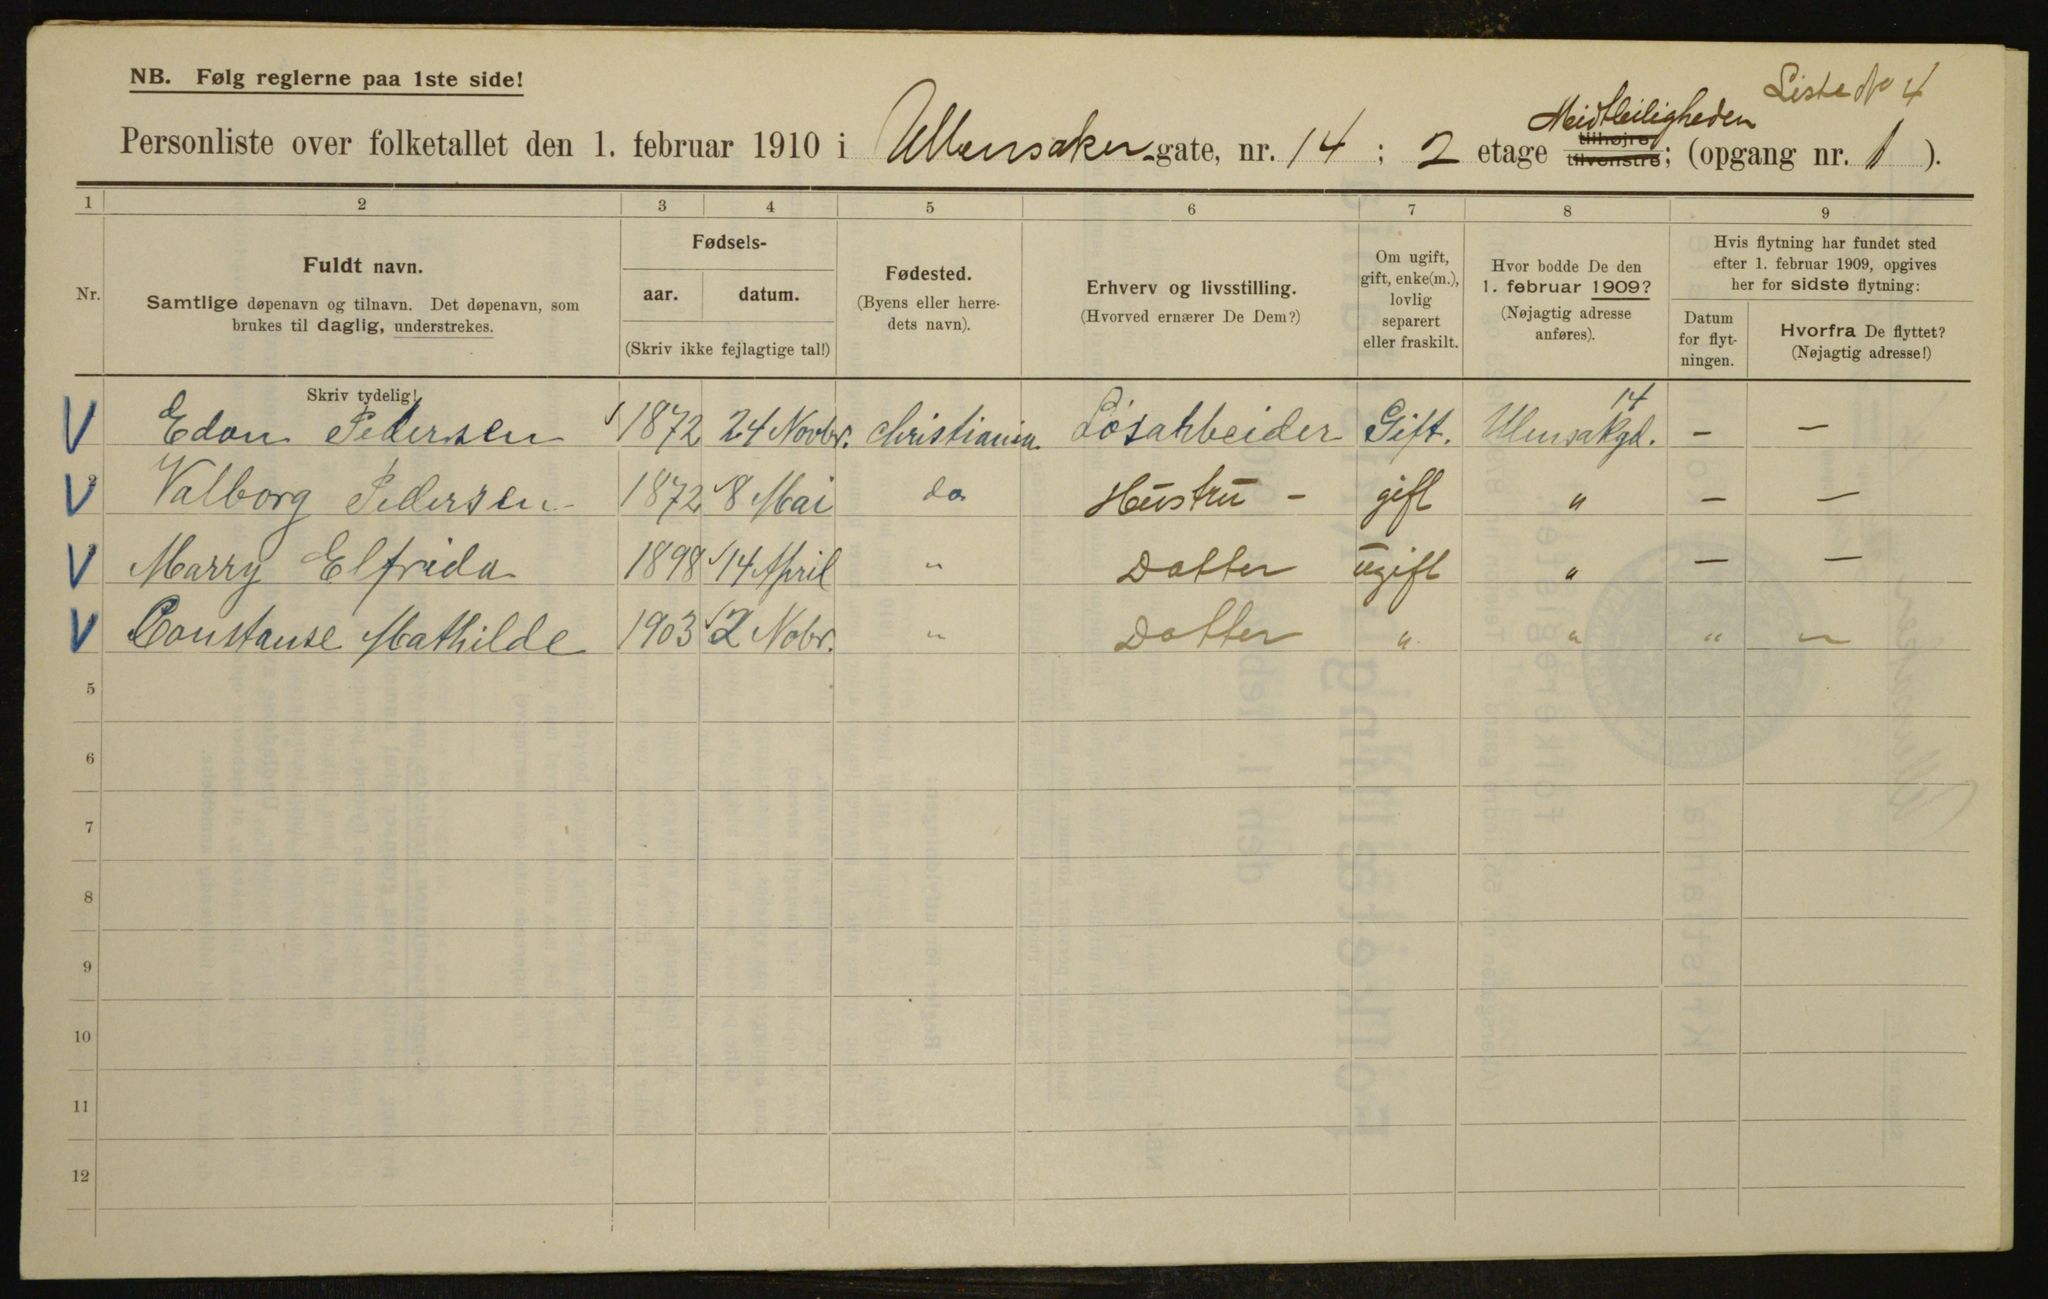 Liste No 4
NB. Følg reglerne paa 1ste side!
Midtleiligheden
Personliste over folketallet den 1. februar 1910 i Ullensaker-gate, nr. 14 ; 2 etage tilhøjre tilvenstre; (opgang nr. 1 ).
1 2 3 4 5 6 7 8 9
Nr.
Fuldt navn.
Samtlige døpenavn og tilnavn. Det døpenavn, som
brukes til daglig, understrekes.
Fødsels-
aar. datum.
(Skriv ikke fejlagtige tal!)
Fødested.
(Byens eller herre-
dets navn).
Erhverv og livsstilling.
(Hvorved ernærer De Dem?)
Om ugift,
gift, enke(m.),
lovlig
separert
eller fraskilt.
Hvor bodde De den
1. februar 1909?
(Nøjagtig adresse
anføres).
Hvis flytning har fundet sted
efter 1. februar 1909, opgives
her for sidste flytning:
Datum
for flyt-
ningen.
Hvorfra De flyttet?
(Nøjagtig adresse!)
Skriv tydelig!
V Edon Pedersen 1872 24 Novbr. Christiania Løsarbeider Gift. Ulensakgd. 14 – –
V Valborg Pedersen 1872 8 Mai do Hustru – gift " – –
V Marry Elfrida 1898 14 April " Datter ugift " – –
V Constanse Mathilde 1903 2 Nobr. " Datter " " " "
5
6
7
8
9
10
11
12